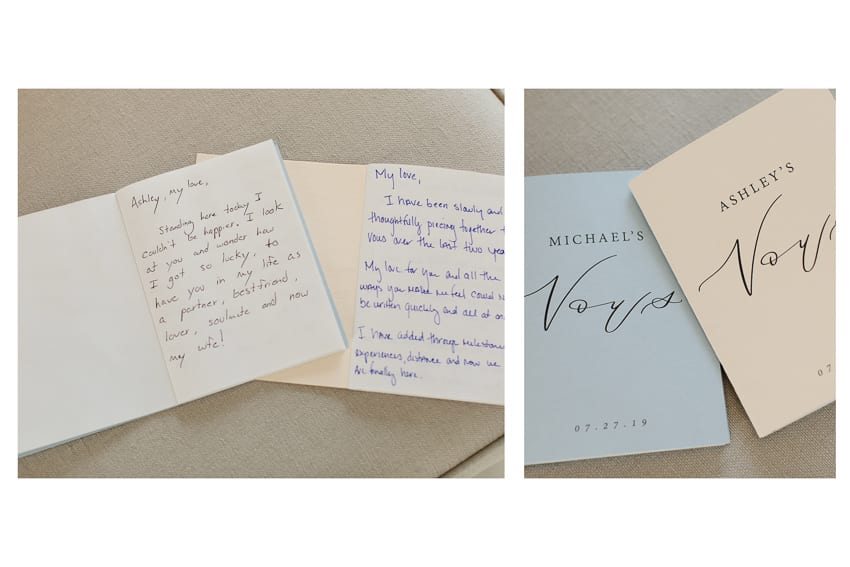 Ashley, my love,
Standing here today I
couldn't be happier. I look
at you and wonder how
I got so lucky, to
have you in my life as
a partner, bestfriend,
lover, soulmate and now
my wife!
My love,
I have been slowly and
thoughtfully piecing together
vows over the last two
My love for you and all the
ways you make me feel could
be written quickly and all at
I have added through
experiences, distance and now we
are finally here.
MICHAEL'S
Vows
07.27.19
ASHLEY'S
Vows
07